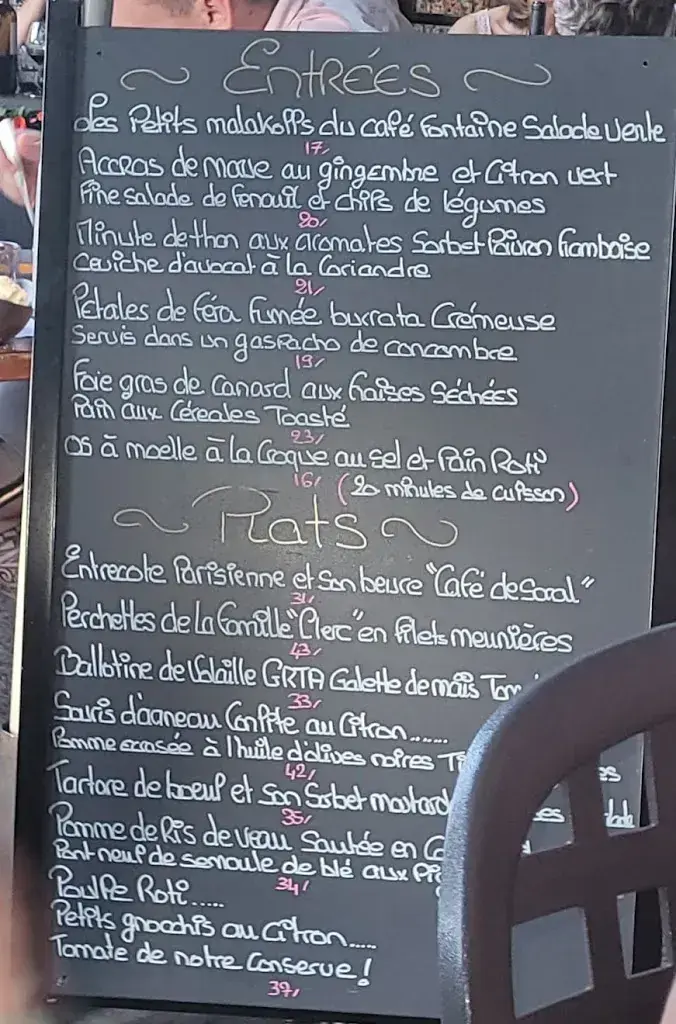 ~ Entrées ~
Les Petits malakoffs du café Fontaine Salade Verte
17,
Accras de morue au gingembre et Citron vert
Fine salade de fenouil et chips de légumes
20,
Minute de thon aux aromates Sorbet Poivron framboise
Ceviche d'avocat à la Coriandre
21,
Pétales de féra Fumée burrata Crémeuse
Servis dans un gaspacho de concombre
19,
Foie gras de Canard aux fraises Séchées
Pain aux Céreales Toasté
23,
Os à moelle à la Croque au sel et Pain Roti
16, (20 minutes de cuisson)
~ Plats ~
Entrecote Parisienne et Son beure "Café de Soral"
31,
Perchettes de La famille "Clerc" en filets meunières
43,
Ballotine de Volaille GRTA Galette de maïs Tom
33,
Souris d'agneau Confite au Citron......
Pomme ecrasée à l'huile d'olives noires
42,
Tartare de boeuf et Son Sorbet moutard
35,
Pomme de Ris de veau Sautée en
Pont neuf de semoule de blé aux
34,
Poulpe Roti.....
Petits gnocchis au Citron.....
Tomate de notre Conserve!
39,